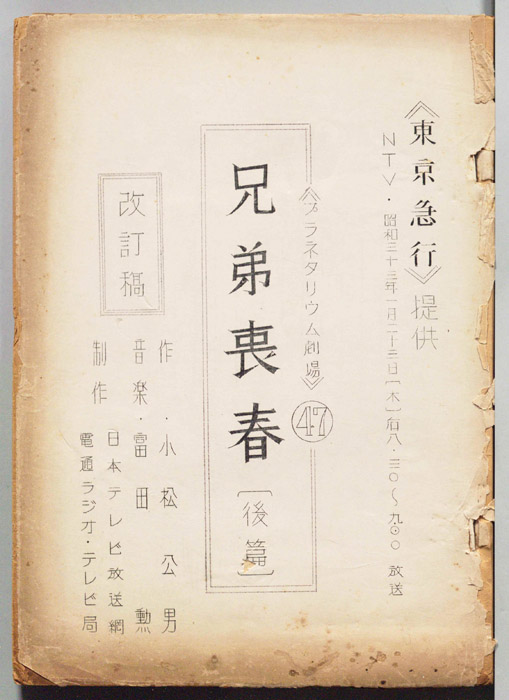 《東京急行》提供
NTV・昭和三十三年一月二十三日〔木〕后八・三〇〜九・〇〇 放送
《プラネタリウム劇場》㊼
兄弟喪春〔後篇〕
改訂稿
作・小松公男
音楽・富田勲
制作 日本テレビ放送網
電通ラジオ・テレビ局